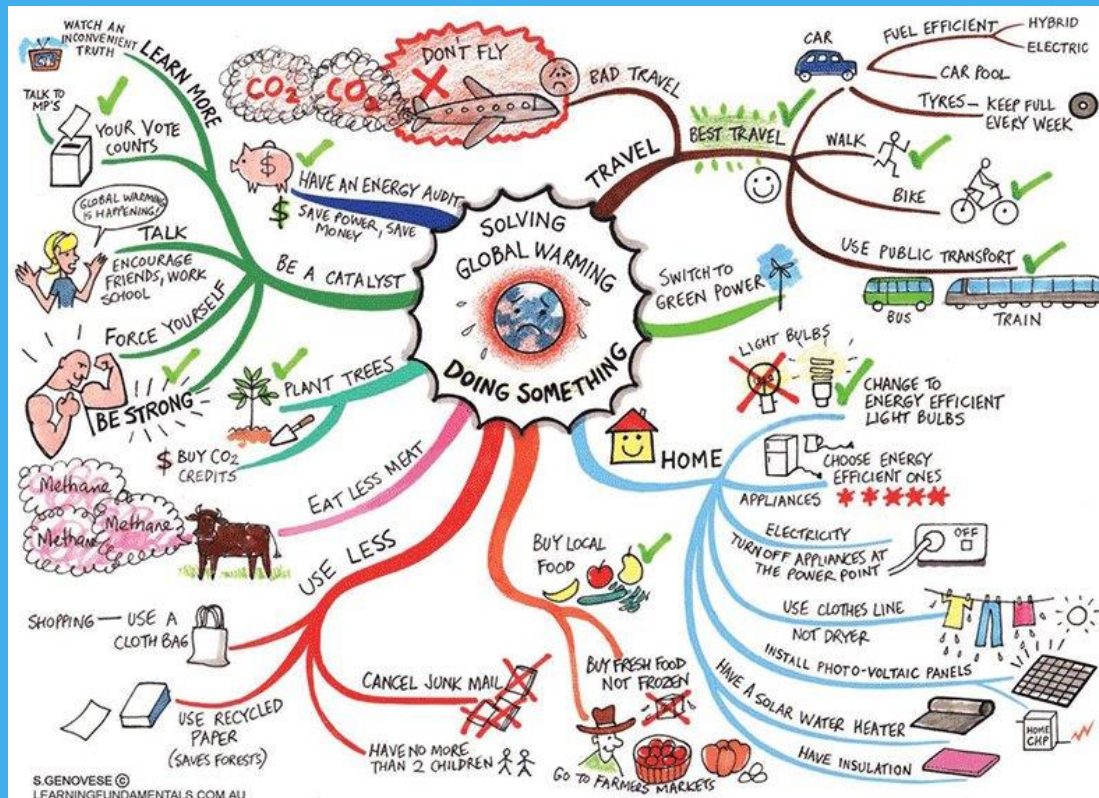 SOLVING
GLOBAL WARMING
DOING SOMETHING
WATCH AN
INCONVENIENT
TRUTH
LEARN MORE
TALK TO
MP'S
YOUR VOTE
COUNTS
GLOBAL WARMING
IS HAPPENING!
TALK
ENCOURAGE
FRIENDS, WORK
SCHOOL
BE A CATALYST
FORCE YOURSELF
BE STRONG
HAVE AN ENERGY AUDIT
$
$ SAVE POWER, SAVE
MONEY
CO2
CO2
DON'T FLY
BAD TRAVEL
TRAVEL
BEST TRAVEL
CAR
FUEL EFFICIENT
HYBRID
ELECTRIC
CAR POOL
TYRES - KEEP FULL
EVERY WEEK
WALK
BIKE
USE PUBLIC TRANSPORT
BUS
TRAIN
SWITCH TO
GREEN POWER
PLANT TREES
$ BUY CO2
CREDITS
EAT LESS MEAT
Methane
Methane
Methane
USE LESS
SHOPPING — USE A
CLOTH BAG
USE RECYCLED
PAPER
(SAVES FORESTS)
CANCEL JUNK MAIL
HAVE NO MORE
THAN 2 CHILDREN
BUY LOCAL
FOOD
BUY FRESH FOOD
NOT FROZEN
GO TO FARMERS MARKETS
HOME
LIGHT BULBS
CHANGE TO
ENERGY EFFICIENT
LIGHT BULBS
CHOOSE ENERGY
EFFICIENT ONES
APPLIANCES
ELECTRICITY
TURN OFF APPLIANCES AT
THE POWER POINT
OFF
USE CLOTHES LINE
NOT DRYER
INSTALL PHOTO-VOLTAIC PANELS
HOME
CHP
HAVE A SOLAR WATER HEATER
HAVE INSULATION
S.GENOVESE ©
LEARNINGFUNDAMENTALS.COM.AU